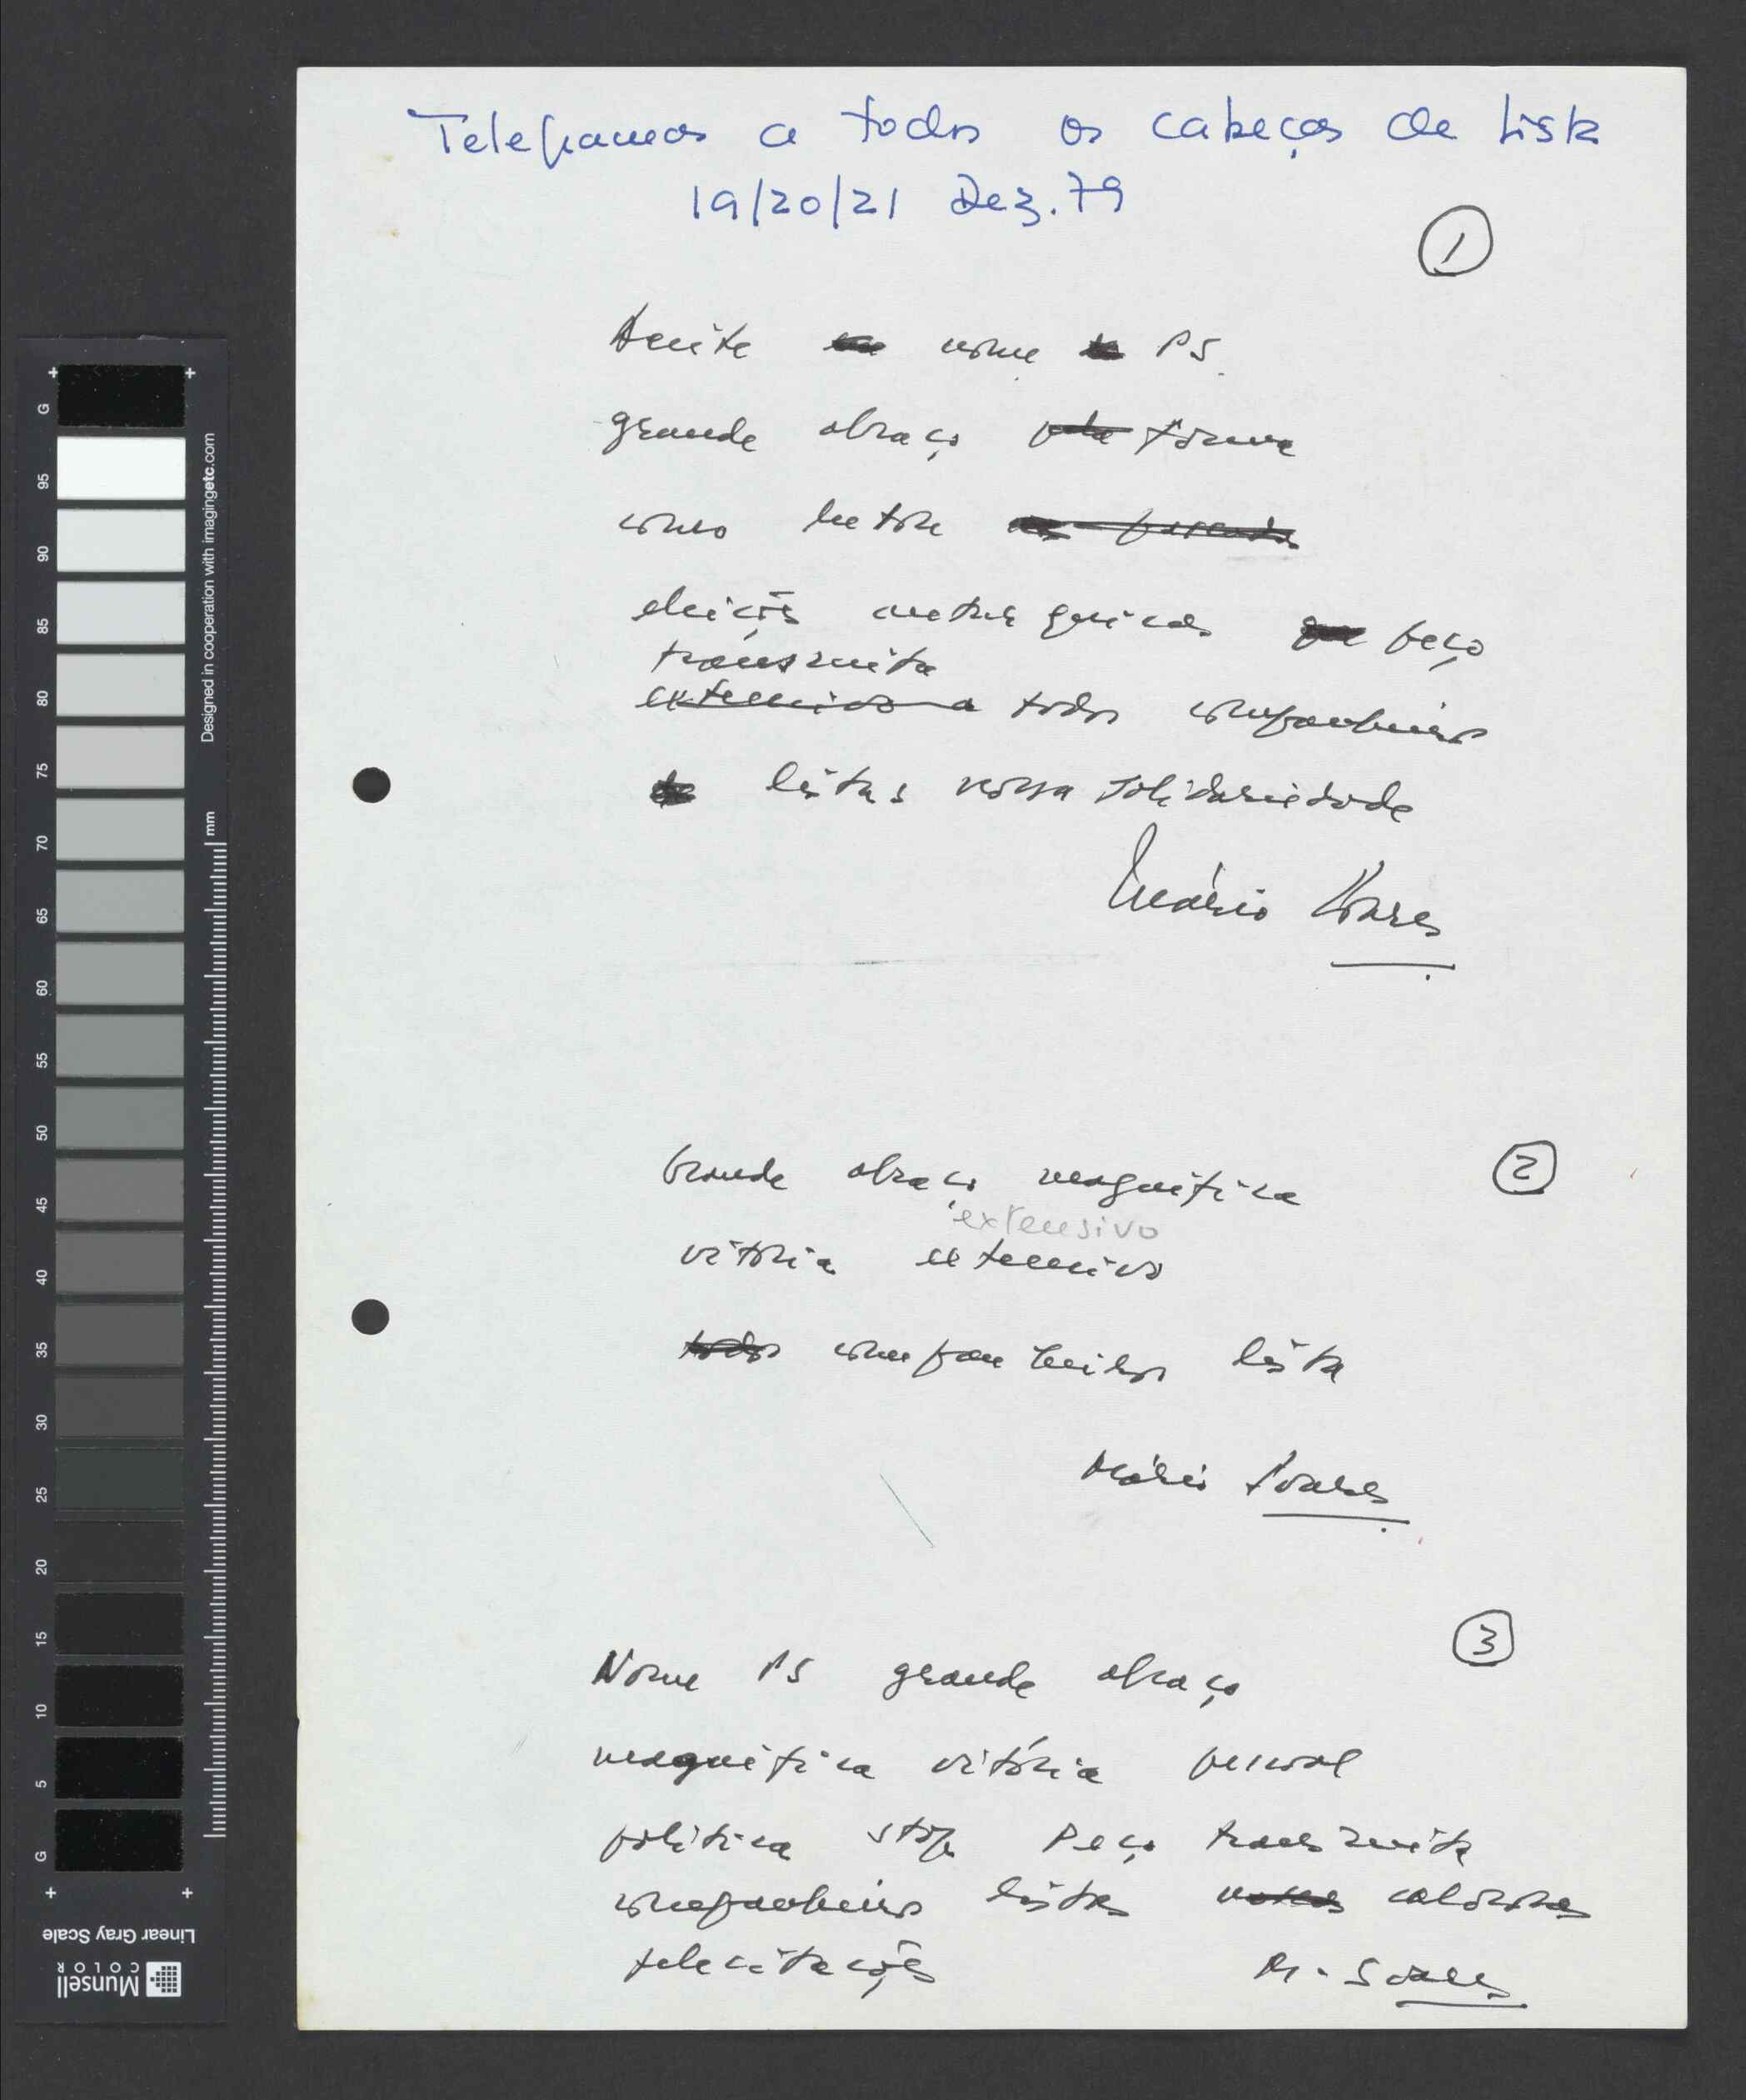 Telegramas a todos os cabeças de Lista
19/20/21 Dez. 79
1
Aceite nome PS.
grande abraço forma
como bateu
eleições autárquicas peço
transmita
extensivo a todos companheiros
listas nossa solidariedade
Mário Soares
2
Grande abraço magnífica
extensivo
vitória extensivo
todos companheiros lista
Mário Soares
3
Nome PS grande abraço
magnífica vitória pessoal
política stop Peço transmita
companheiros lista calorosas
felicitações M. Soares
G
95
90
85
80
75
70
65
60
55
50
45
40
35
30
25
20
15
10
5
G
Designed in cooperation with imagingetc.com
mm
Linear Gray Scale
Munsell
COLOR